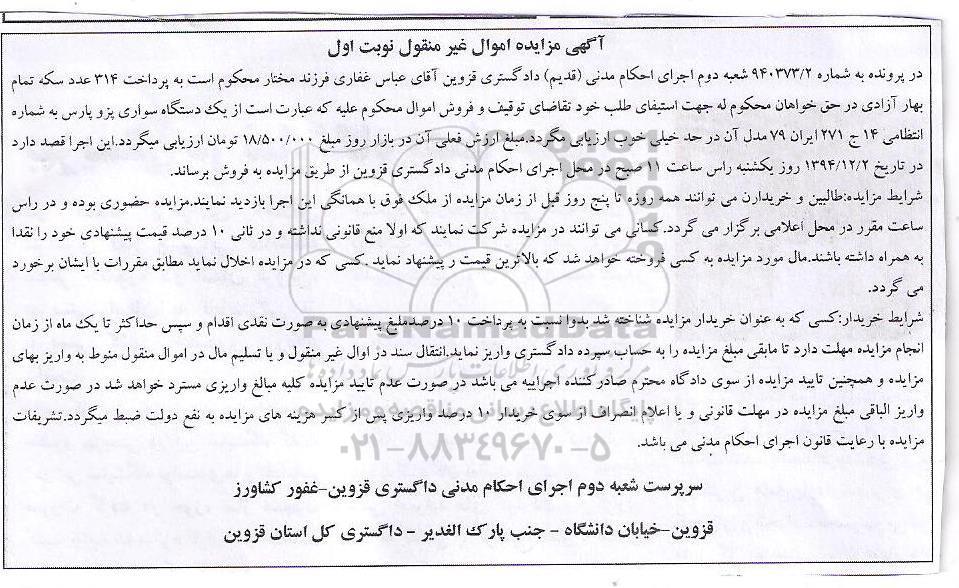 آگهی مزایده اموال غیر منقول نوبت اول
در پرونده به شماره ۹۴۰۳۷۳/۲ شعبه دوم اجرای احکام مدنی (قدیم) دادگستری قزوین آقای عباس غفاری فرزند مختار محکوم است به پرداخت ۳۱۴ عدد سکه تمام
بهار آزادی در حق خواهان محکوم له جهت استیفای طلب خود تقاضای توقیف و فروش اموال محکوم علیه که عبارت است از یک دستگاه سواری پزو پارس به شماره
انتظامی ۱۴ ج ۲۷۱ ایران ۷۹ مدل آن در حد خیلی خوب ارزیابی مگردد.مبلغ ارزش فعلی آن در بازار روز مبلغ ۱۸/۵۰۰/۰۰۰ تومان ارزیابی میگردد.این اجرا قصد دارد
در تاریخ ۱۳۹۴/۱۲/۲ روز یکشنبه راس ساعت ۱۱ صبح در محل اجرای احکام مدنی دادگستری قزوین از طریق مزایده به فروش برساند.
شرایط مزایده:طالبین و خریدارن می توانند همه روزه تا پنج روز قبل از زمان مزایده از ملک فوق با همانگی این اجرا بازدید نمایند.مزایده حضوری بوده و در راس
ساعت مقرر در محل اعلامی برگزار می گردد.کسانی می توانند در مزایده شرکت نمایند که اولا منع قانونی نداشته و در ثانی ۱۰ درصد قیمت پیشنهادی خود را نقدا
به همراه داشته باشند.مال مورد مزایده به کسی فروخته خواهد شد که بالاترین قیمت ر پیشنهاد نماید .کسی که در مزایده اخلال نماید مطابق مقررات با ایشان برخورد
می گردد.
شرایط خریدار:کسی که به عنوان خریدار مزایده شناخته شد بدوا نسبت به پرداخت ۱۰ درصدملبغ پیشنهادی به صورت نقدی اقدام و سپس حداکثر تا یک ماه از زمان
انجام مزایده مهلت دارد تا مابقی مبلغ مزایده را به حساب سپرده دادگستری واریز نماید.انتقال سند در اوال غیر منقول و یا تسلیم مال در اموال منقول منوط به واریز بهای
مزایده و همچنین تایید مزایده از سوی دادگاه محترم صادر کننده اجراییه می باشد در صورت عدم تایید مزایده کلیه مبالغ واریزی مسترد خواهد شد در صورت عدم
واریز الباقی مبلغ مزایده در مهلت قانونی و یا اعلام انصراف از سوی خریدار ۱۰ درصد واریزی پس از کسر هزینه های مزایده به نفع دولت ضبط میگردد.تشریفات
مزایده با رعایت قانون اجرای احکام مدنی می باشد.
سرپرست شعبه دوم اجرای احکام مدنی داگستری قزوین-غفور کشاورز
قزوین-خیابان دانشگاه - جنب پارک الغدیر - داگستری کل استان قزوین
ParsNamadData
۰۲۱-۸۸۳۴۹۶۷۰-۵